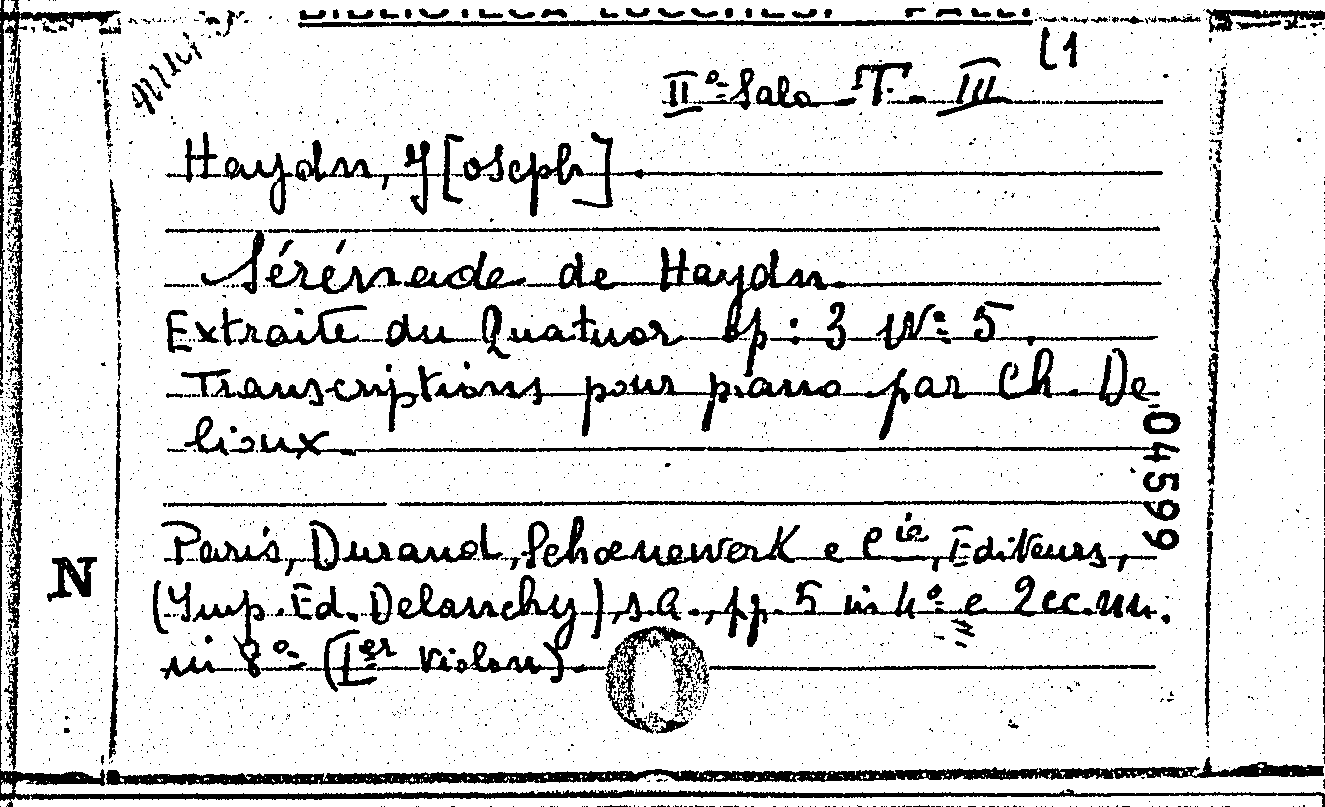 BIBLIOTECA LUCCHESI - PALLI
L1
IIª Sala T. III
Haydn, J[oseph].
Sérénade de Haydn.
Extraite du Quatuor op: 3 Nº 5.
Transcriptions pour piano par Ch. De
lioux.
04599
Paris, Durand, Schoenewerk e Cie, Editeurs,
N
(Imp. Ed. Delanchy), s.a., pp. 5 in 4º e 2 cc. nn.
in 8º (Ier violon).